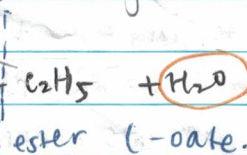 C₂H₅ + H₂O
ester (-oate.